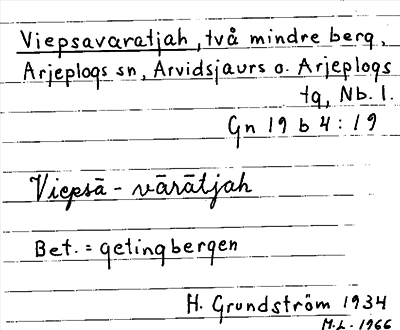 Viepsavaratjah, två mindre berg,
Arjeplogs sn, Arvidsjaurs o. Arjeplogs
tg, Nb. l.
Gn 19 b 4 : 19
Viepsā - vārātjah
Bet. = getingbergen
H. Grundström 1934
M.L. 1966